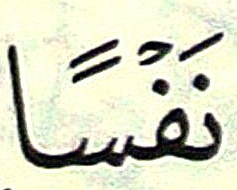 نَفْسًا